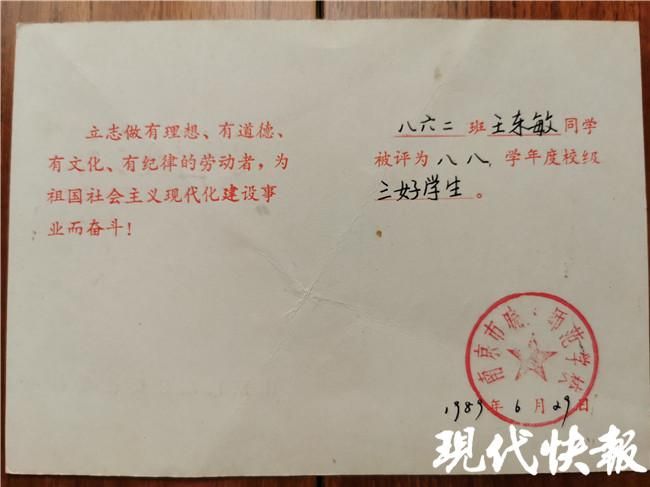 立志做有理想、有道德、
有文化、有纪律的劳动者，为
祖国社会主义现代化建设事
业而奋斗！
八六二 班王东敏同学
被评为八八 学年度校级
三好学生。
南京市晓庄师范学校
1989年6月29日
现代快報